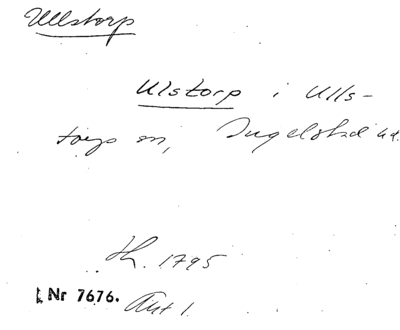 Ullstorp
Ulstorp i Ulls-
torps sn, Ingelstad hd.
Th. 1795
Nr 7676. Aut 1.